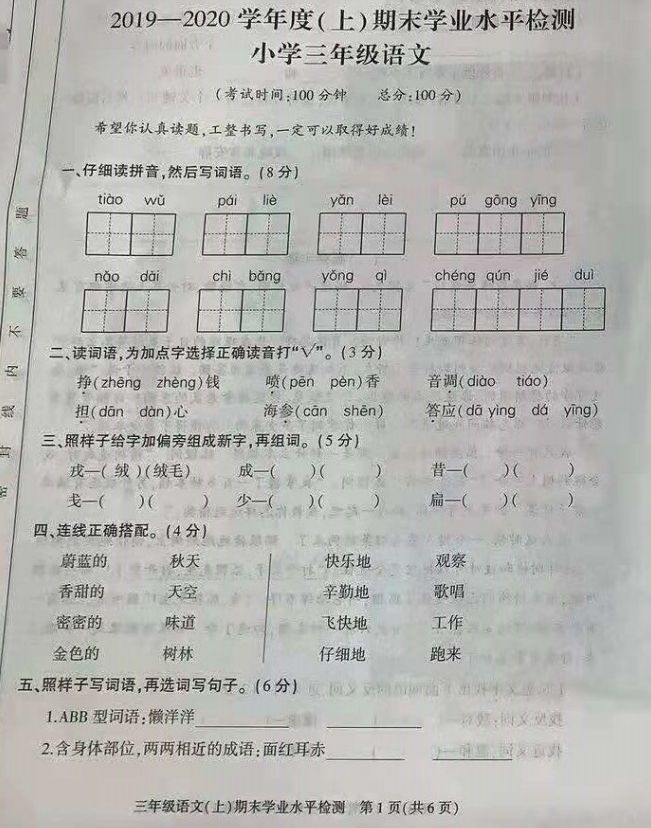 2019—2020 学年度(上)期末学业水平检测
小学三年级语文
(考试时间:100 分钟 总分:100 分)
希望你认真读题,工整书写,一定可以取得好成绩!
一、仔细读拼音,然后写词语。(8 分)
tiào wǔ pái liè yǎn lèi pú gōng yīng
nǎo dāi chì bǎng yǒng qì chéng qún jié duì
二、读词语,为加点字选择正确读音打“√”。(3 分)
挣(zhēng zhèng)钱 喷(pēn pèn)香 音调(diào tiáo)
担(dān dàn)心 海参(cān shēn) 答应(dā yìng dá yīng)
三、照样子给字加偏旁组成新字,再组词。(5 分)
戎—( 绒 )(绒毛) 成—( )( ) 昔—( )( )
戋—( )( ) 少—( )( ) 扁—( )( )
四、连线正确搭配。(4 分)
蔚蓝的 秋天 快乐地 观察
香甜的 天空 辛勤地 歌唱
密密的 味道 飞快地 工作
金色的 树林 仔细地 跑来
五、照样子写词语,再选词写句子。(6 分)
1.ABB 型词语:懒洋洋
2.含身体部位,两两相近的成语:面红耳赤
三年级语文(上)期末学业水平检测 第 1 页(共 6 页)
密 封 线 内 不 要 答 题